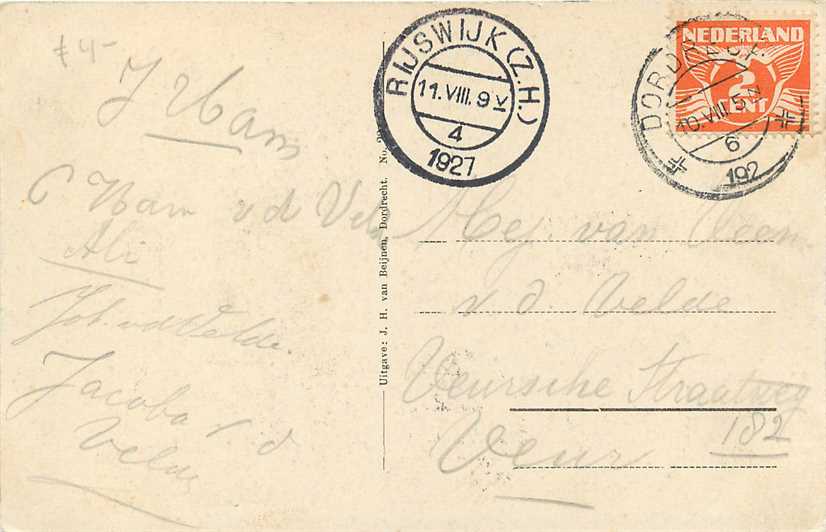 £ 4-
J Ham
C Ham v d Velde
Ali
Joh. v d Velde.
Jacoba v. d
Velde
Uitgave: J. H. van Beijnen, Dordrecht. No.
RIJSWIJK (Z.H.)
11.VIII.9 V
4
1927
NEDERLAND
2
CENT
DORDRECHT
10.VIII.5 N
6
192
Mej. van Veen
v. d. Velde
Veursche Straatweg
182
Veur